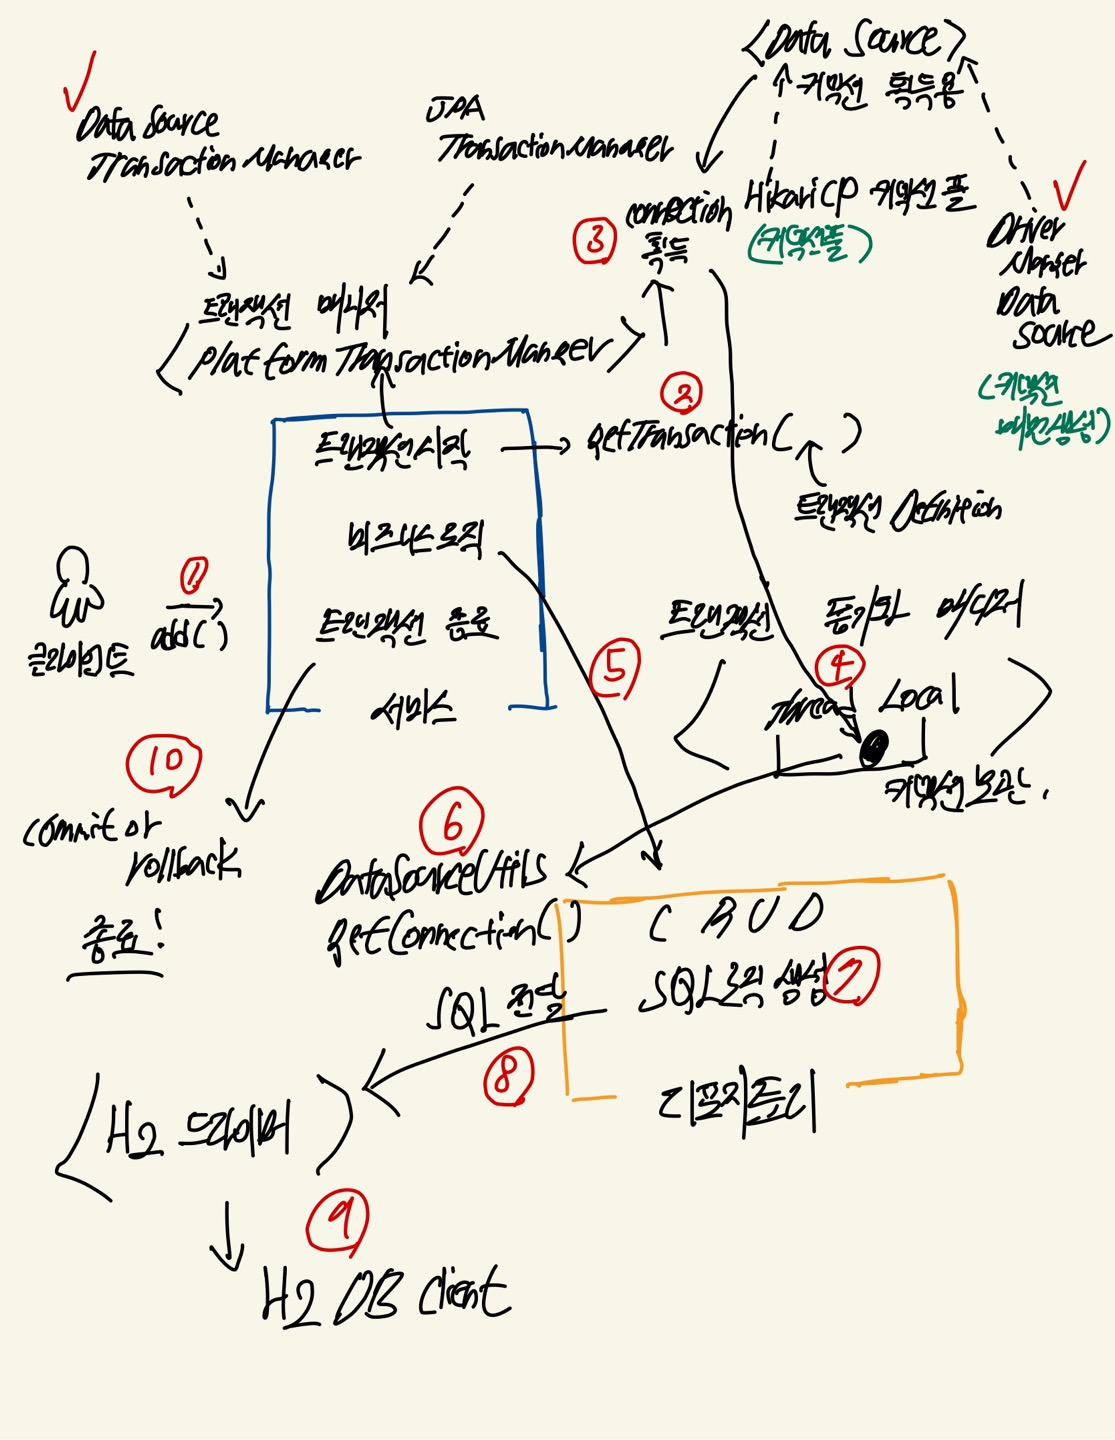 <Data Source>
커넥션 획득용
Data Source
Transaction Manager
JPA
Transaction Manager
connection
획득
③
HikariCP 커넥션 풀
(커넥션풀)
Driver
Manger
Data
Source
(커넥션
매번생성)
트랜잭션 매니저
<Platform Transaction Manager>
②
트랜잭션시작
getTransaction( )
트랜잭션 Definition
비즈니스로직
①
add()
클라이언트
트랜잭션 종료
서비스
트랜잭션 동기화 매니저
④
Thread Local
커넥션 보관.
⑤
⑩
commit or
rollback
종료!
⑥
DataSourceUtils
getConnection()
C R U D
SQL로직 생성
⑦
리포지토리
SQL 전달
⑧
<H2 드라이버>
⑨
H2 DB Client